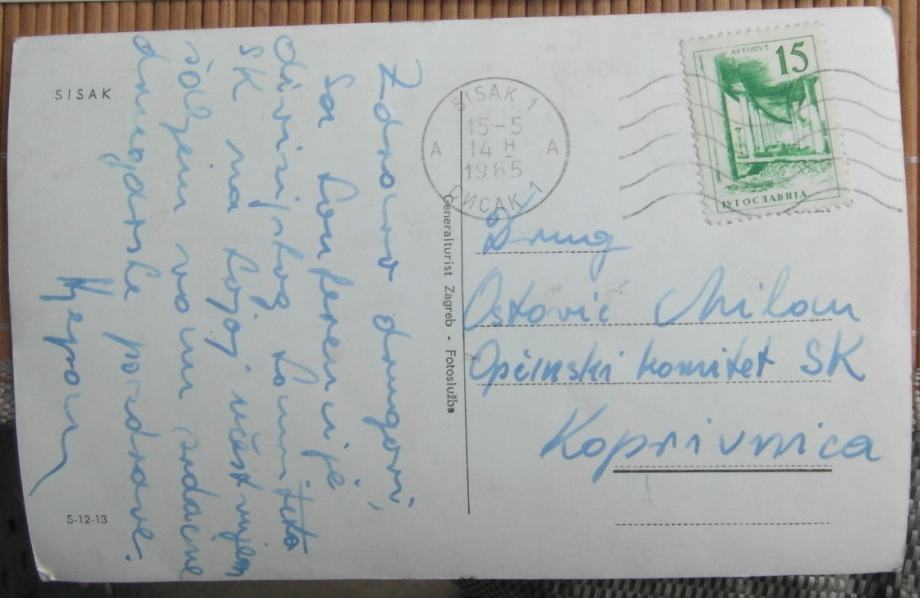 SISAK
Zdravo drugovi,
Sa konferencije
divizijskog komiteta
SK na kojoj učestvujem
šaljem vam srdačne
drugarske pozdrave.
S-12-13
Generalturist Zagreb - Fotoslužba
SISAK 1
15-5
14 H
A A
1965
СИСАК 1
АУТОПУТ 15
ЈУГОСЛАВИЈА
Drug
Ostović Milan
Općinski komitet SK
Koprivnica